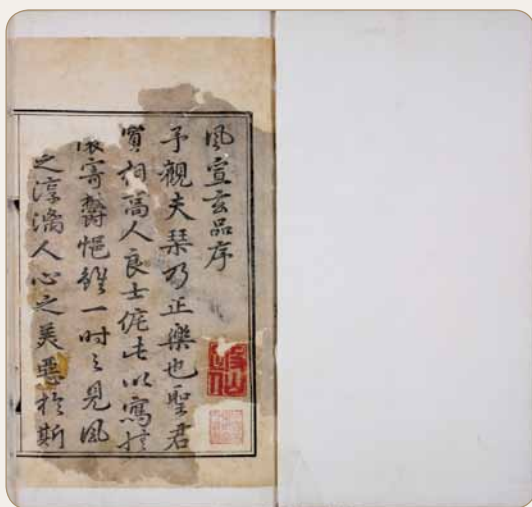 風宣玄品序
予觀夫琹乃正樂也聖君
賢相高人良士侂此以寫
懷寄鬱悒雖一時之見風
之淳漓人心之美惡於斯